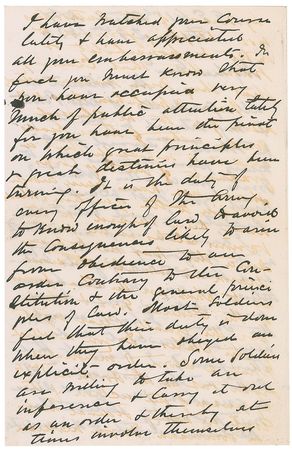 I have watched your course
lately & have appreciated
all your embarrassments. In
fact you must know that
you have occupied very
much of public attention lately
for you have been the pivot
on which great principles
& great destinies have been
turning. It is the duty of
every officer of the Army
to know enough of law to avoid
the consequences likely to arise
from obedience to an
order contrary to the Con-
stitution & the general princi
ples of law. Most soldiers
feel that their duty is done
when they have obeyed an
explicit order. Some soldiers
are willing to take an
inference & carry it out
as an order & thereby at
times involve themselves